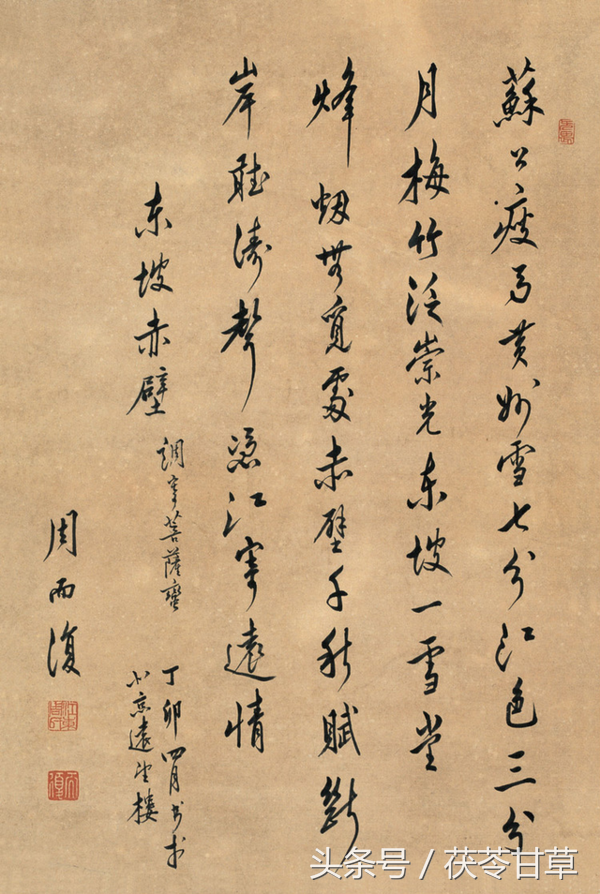 蘇公瘦馬黄州雪七分江色三分
月梅竹泛崇光东坡一雪堂
烽烟無覓處赤壁千秋賦斷
岸聽濤聲憑江寄遠情
东坡赤壁
調寄菩薩蠻
丁卯四月书于
北京遠望樓
周而復
头条号 / 茯苓甘草